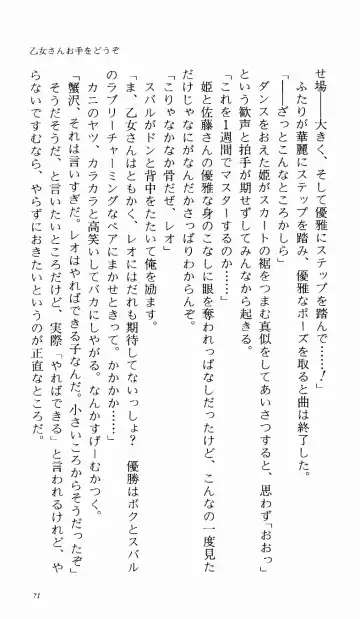 乙女さんお手をどうぞ
せ場――大きく、そして優雅にステップを踏んで……！』
ふたりが華麗にステップを踏み、優雅なポーズを取ると曲は終了した。
「――ざっとこんなところかしら」
ダンスをおえた姫がスカートの裾をつまむ真似をしてあいさつすると、思わず「おおっ」
という歓声と拍手が期せずしてみんなから起きる。
「これを１週間でマスターするのか……」
姫と佐藤さんの優雅な身のこなしに眼を奪われっぱなしだったけど、こんなの一度見た
だけじゃなにがなんだかさっぱりわからんぞ。
「こりゃなかなか骨だぜ、レオ」
スバルがドンと背中をたたいて俺を励ます。
「ま、乙女さんはともかく、レオにはだれも期待してないっしょ？　優勝はボクとスバル
のラブリーチャーミングなペアにまかせときって。かかかか……」
カニのヤツ、カラカラと高笑いしてバカにしやがる。なんかすげーむかつく。
「蟹沢、それは言いすぎだ。レオはやればできる子なんだ。小さいころからそうだったぞ」
そうだそうだ、と言いたいところだけど、実際「やればできる」と言われるけれど、や
らないですむなら、やらずにおきたいというのが正直なところだ。
71